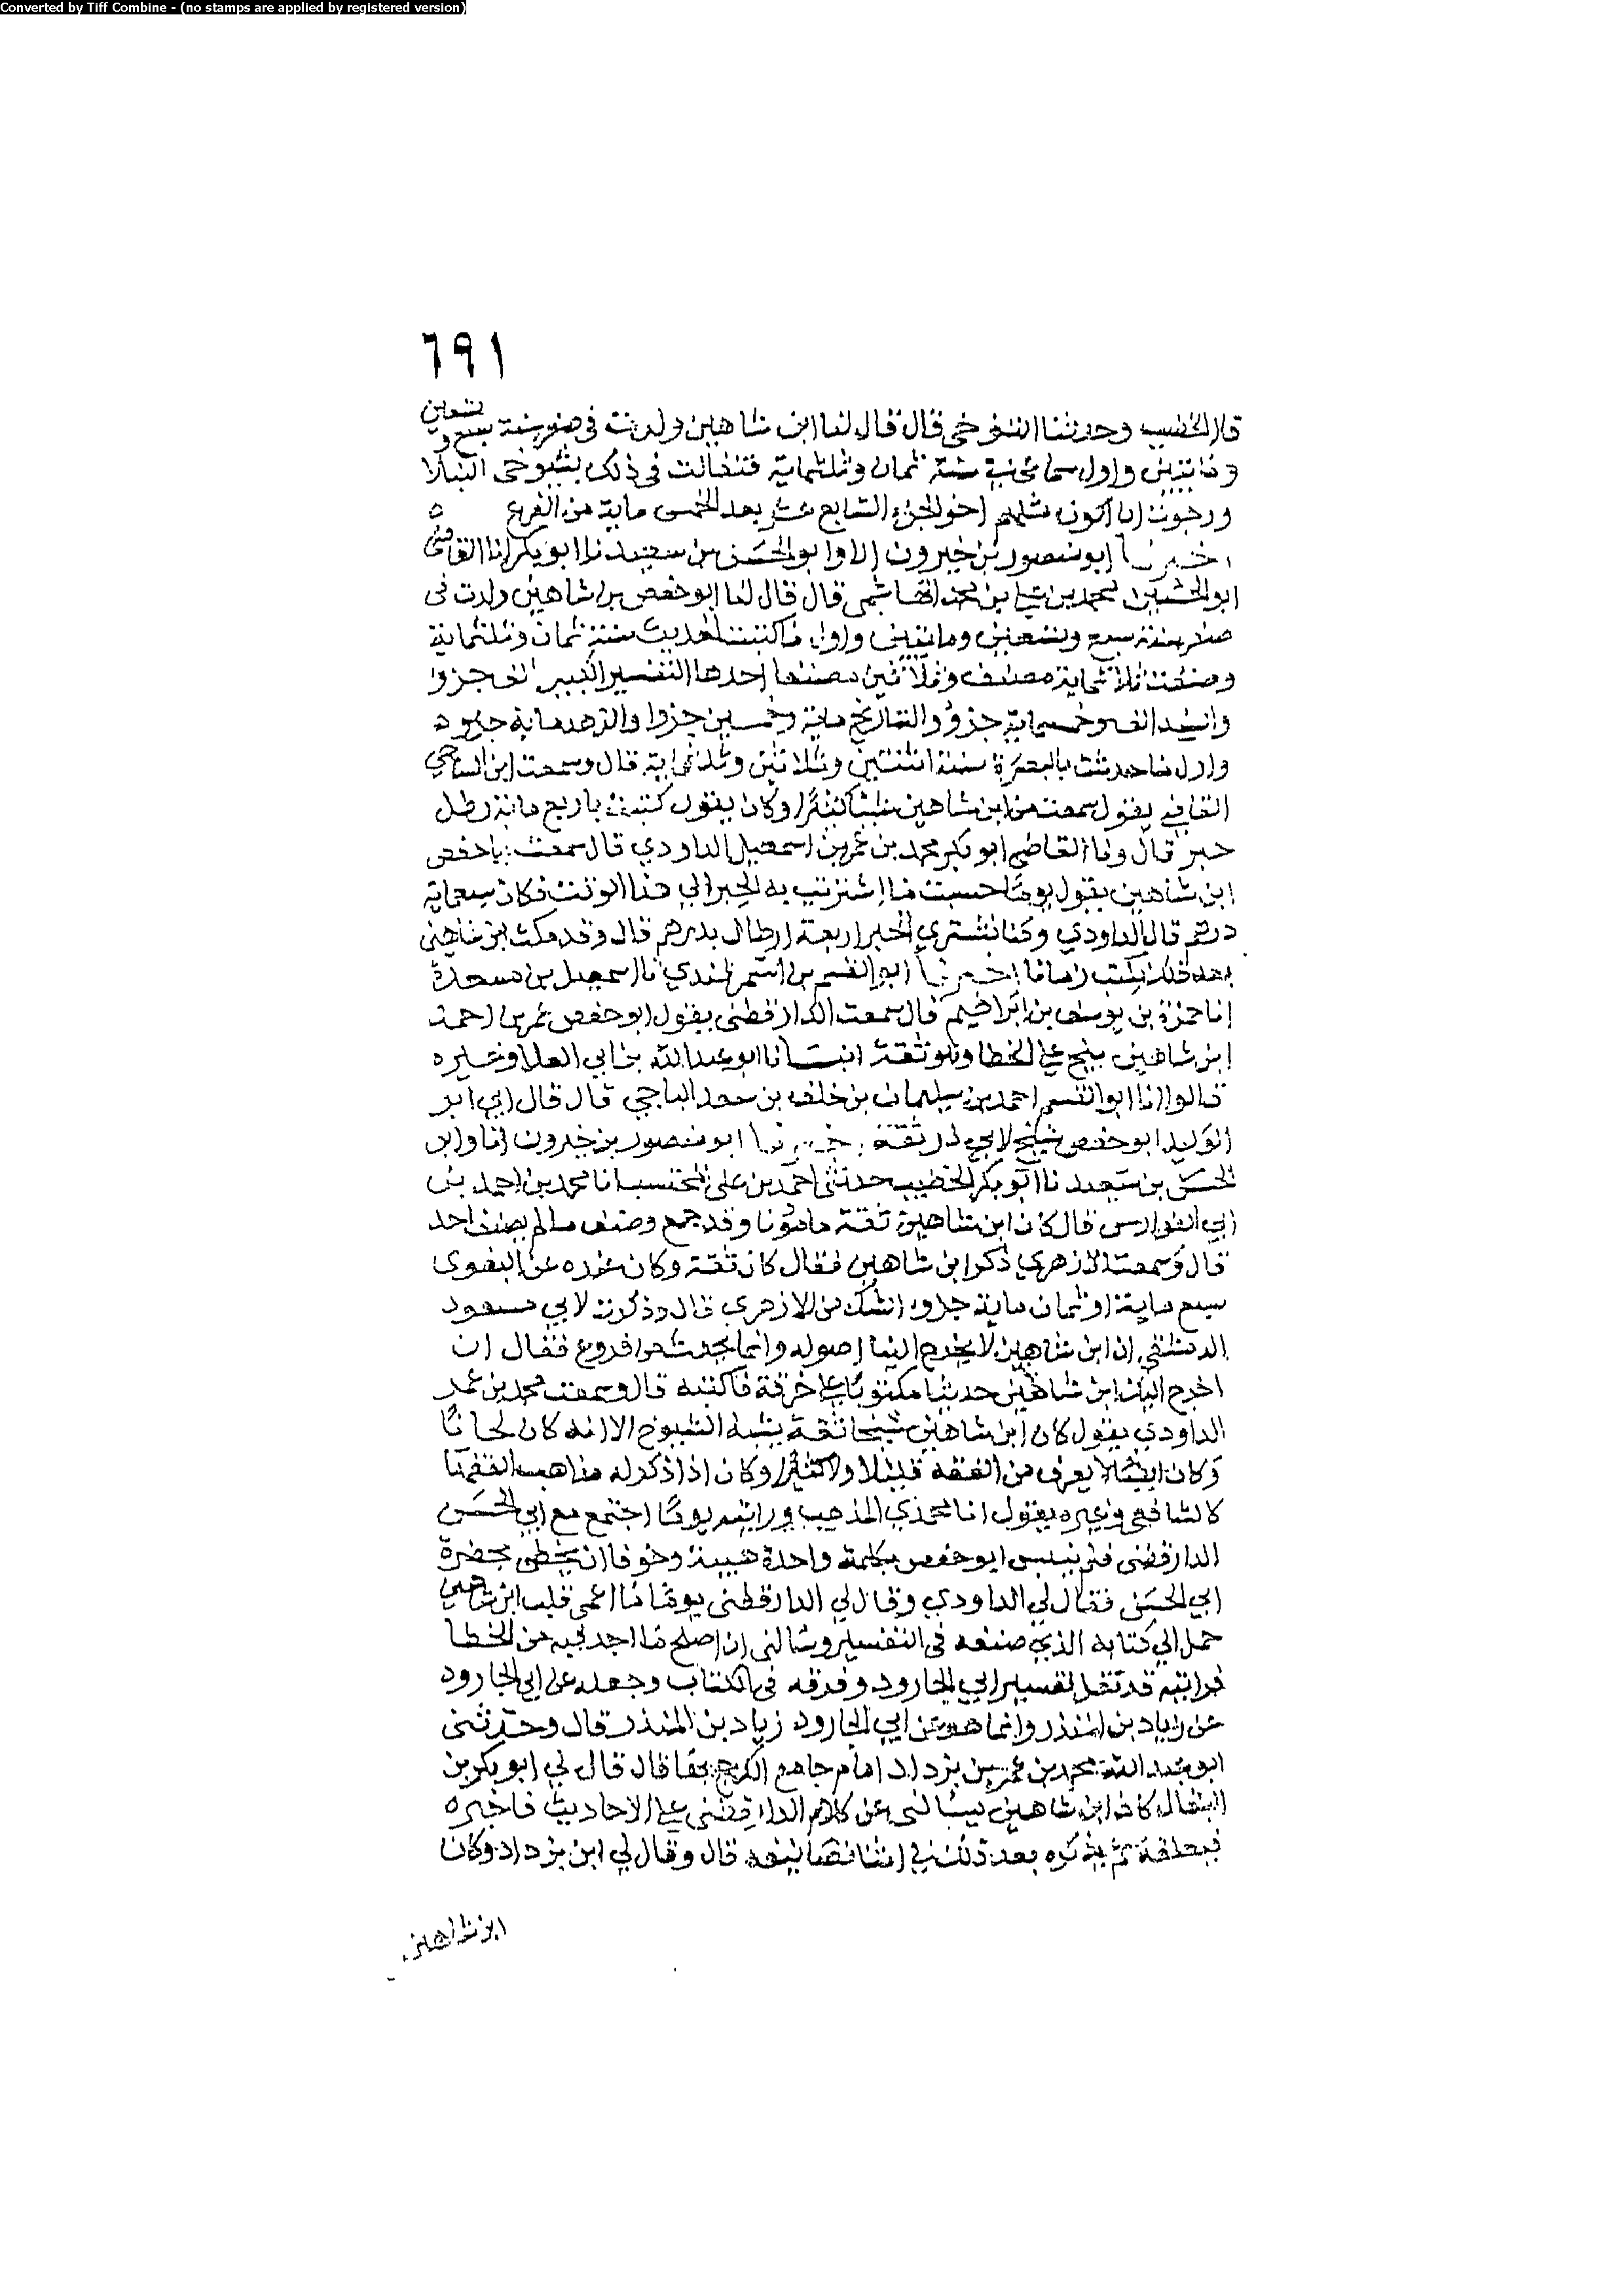 Converted by Tiff Combine - (no stamps are applied by registered version)
٦٩١
قال الخطيب وحدثنا التنوخي قال قال لنا ابن شاهين ولدت في صفر سنة سبع و تسعين
ومائتين واول سماعي سنة ثمان وثلثماية فتفالت في ذلك بشيوخي النبلا
ورجوت ان اكون مثلهم اخر الجزء السابع عشر بعد الخمس ماية من الفرع ه
اخبرنا ابو منصور بن خيرون انا وابو الحسن بن سعيد نا ابو بكر انا القاضي
ابو الحسين محمد بن علي بن محمد الهاشمي قال قال لنا ابو حفص بن شاهين ولدت في
صفر سنة سبع وتسعين ومائتين واول ما كتبت الحديث سنة ثمان وثلثماية
وصنفت ثلاثماية مصنف وثلاثين مصنفا احدها التفسير الكبير الف جزو
والمسند الف وخمسماية جزو والتاريخ ماية وخمسين جزوا والزهد ماية جزو ه
واول ما حدثت بالبصرة سنة اثنتين وثلاثين وثلثماية قال وسمعت ابن الساجي
القاضي يقول سمعت من ابن شاهين شيئا كثيرا وكان يقول كتبت باربع مائة رطل
حبر قال ونا القاضي ابو بكر محمد بن عمر بن اسمعيل الداودي قال سمعت ابا حفص
ابن شاهين يقول يوما حسبت ما اشتريت به الحبر الي هذا الوقت فكان سبعماية
درهم قال الداودي وكنا نشتري الحبر اربعة ارطال بدرهم قال وقد مكث ابن شاهين
بعد ذلك يكتب زمانا اخبرنا ابو القسم بن السمرقندي نا اسمعيل بن مسعدة
انا حمزة بن يوسف بن ابراهيم قال سمعت الدارقطني يقول ابو حفص عمر بن احمد
ابن شاهين يلج علي الخطا وهو ثقة انبانا ابو عبد الله بن ابي العلا وغيره
قالوا انا ابو القسم احمد بن سليمان بن خلف بن سعد الباجي قال قال ابي ابو
الوليد ابو حفص شيخ لابي ذر ثقة اخبرنا ابو منصور بن خيرون انا وابو
الحسن بن سعيد نا ابو بكر الخطيب حدثني احمد بن علي المحتسب انا محمد بن احمد بن
ابي الفوارس قال كان ابن شاهين ثقة مامونا وقد جمع وصنف ما لم يصنف احد
قال وسمعت الازهري ذكر ابن شاهين فقال كان ثقة وكان عنده عن البغوي
سبع ماية او ثمان ماية جزو الشك من الازهري قال وذكرت لابي مسعود
الدمشقي ان ابن شاهين لا يخرج الينا اصوله وانما يحدث من فروع فقال ان
اخرج اليك ابن شاهين حديثا مكتوبا علي خرقة فاكتبه قال وسمعت محمد بن عمر
الداودي يقول كان ابن شاهين شيخا ثقة يشبه الشيوخ الا انه كان لحانا
وكان ايضا لا يعرف من الفقه قليلا ولا كثيرا وكان اذا ذكر له مذاهب الفقها
كالشافعي وغيره يقول انا محمدي المذهب ورايته يوما اجتمع مع ابي الحسن
الدارقطني فلم ينبس ابو حفص بكلمة واحدة هيبة وخوفا ان يخطي بحضرة
ابي الحسن فقال لي الداودي وقال لي الدارقطني يوما ما اعمي قلب ابن شاهين
حمل الي كتابه الذي صنفه في التفسير وسالني ان اصلح ما اجد فيه من الخطا
فرايته قد نقل تفسير ابي الجارود وفرقه في الكتاب وجعله عن ابي الجارود
عن زياد بن المنذر وانما هو عن ابي الجارود زياد بن المنذر قال وحدثني
ابو عبد الله محمد بن عمر بن يزداد امام جامع الكرج بها قال قال لي ابو بكر بن
البقال كان ابن شاهين يسالني عن كلام الدارقطني علي الاحاديث فاخبره
فيعلقه ثم يذكره بعد ذلك في اثنا تصانيفه قال وقال لي ابن يزداد وكان
ابن شاهين